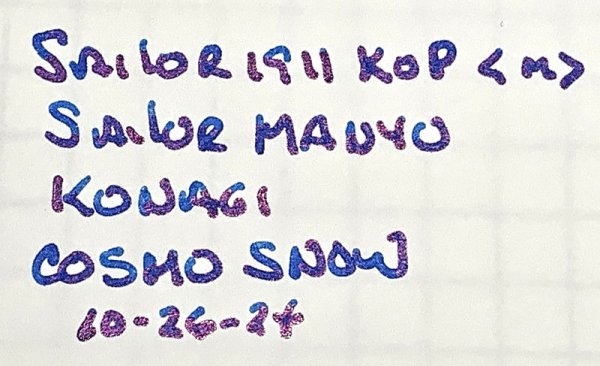 SAILOR 1911 KOP <M>
SAILOR MANYO
KONAGI
COSMO SNOW
10-26-24